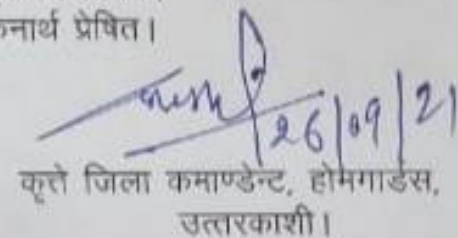 नार्थ प्रेषित।
26/09/21
कृते जिला कमाण्डेन्ट, होमगार्डस,
उत्तरकाशी।